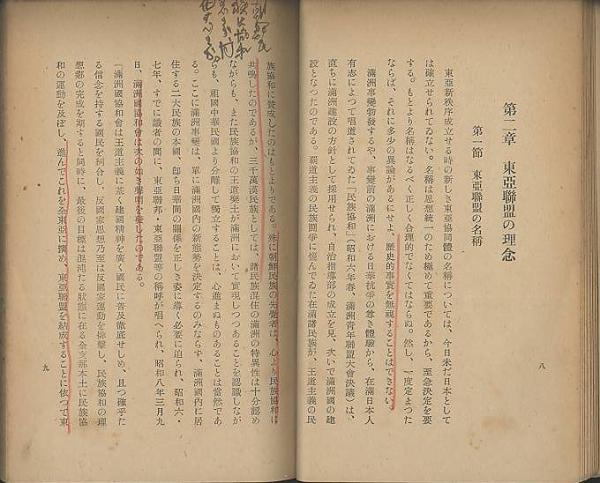 第二章　東亞聯盟の理念
第一節　東亞聯盟の名稱
東亞新秩序成立せる時の新しき東亞協同體の名稱については、今日未だ日本として
は確立せられてゐない。名稱は思想統一のため極めて重要であるから、至急決定を要
する。もとより名稱はなるべく正しく合理的でなくてはならぬ。然し、一度定まつた
ならば、それに多少の異論があるにせよ、歴史的事實を無視することはできない。
滿洲事變勃發するや、事變前の滿洲における日華抗爭の尊き體驗から、在滿日本人
有志によつて唱道されてゐた「民族協和」(昭和六年春、滿洲青年聯盟大會決議)は、
直ちに滿洲建設の方針として採用せられ、自治指導部の成立を見、次いで滿洲國の建
設となつたのである。覇道主義の民族鬪爭に惱んでゐた在滿諸民族が、王道主義の民
族協和に贊成したのはもとよりである。殊に朝鮮民族の先覺者は、心より民族協和に
共鳴したのであるが、三千萬漢民族としては、諸民族混住の滿洲の特異性は十分認め
ながらも、また民族協和の王道樂土が滿洲において實現しつつあることを認識しなが
らも、祖國中華民國より分離して獨立することは、心進まぬものあることは當然であ
る。ここに滿洲事變は、單に滿洲國內の新態勢を決定するのみならず、滿洲國內に居
住する二大民族の本國、卽ち日華間の關係を正しき姿に導く必要に迫られ、昭和六・
七年、すでに識者の間に、東亞聯邦・東亞聯盟等の稱呼が唱へられ、昭和八年三月九
日、滿洲國協和會は次の如き聲明を發したのである。
「滿洲國協和會は王道主義に基く建國精神を廣く國民に普及徹底せしめ、且つ確乎た
る信念を持する國民を糾合し、反國家思想乃至は反國家運動を排擊し、民族協和の理
想鄕の完成を期すると同時に、最後の目標は混沌たる狀態に在る全支那本土に民族協
和の運動を及ぼし、進んでこれを全東亞に擴め、東亞聯盟を結成することに依つて東
八
九